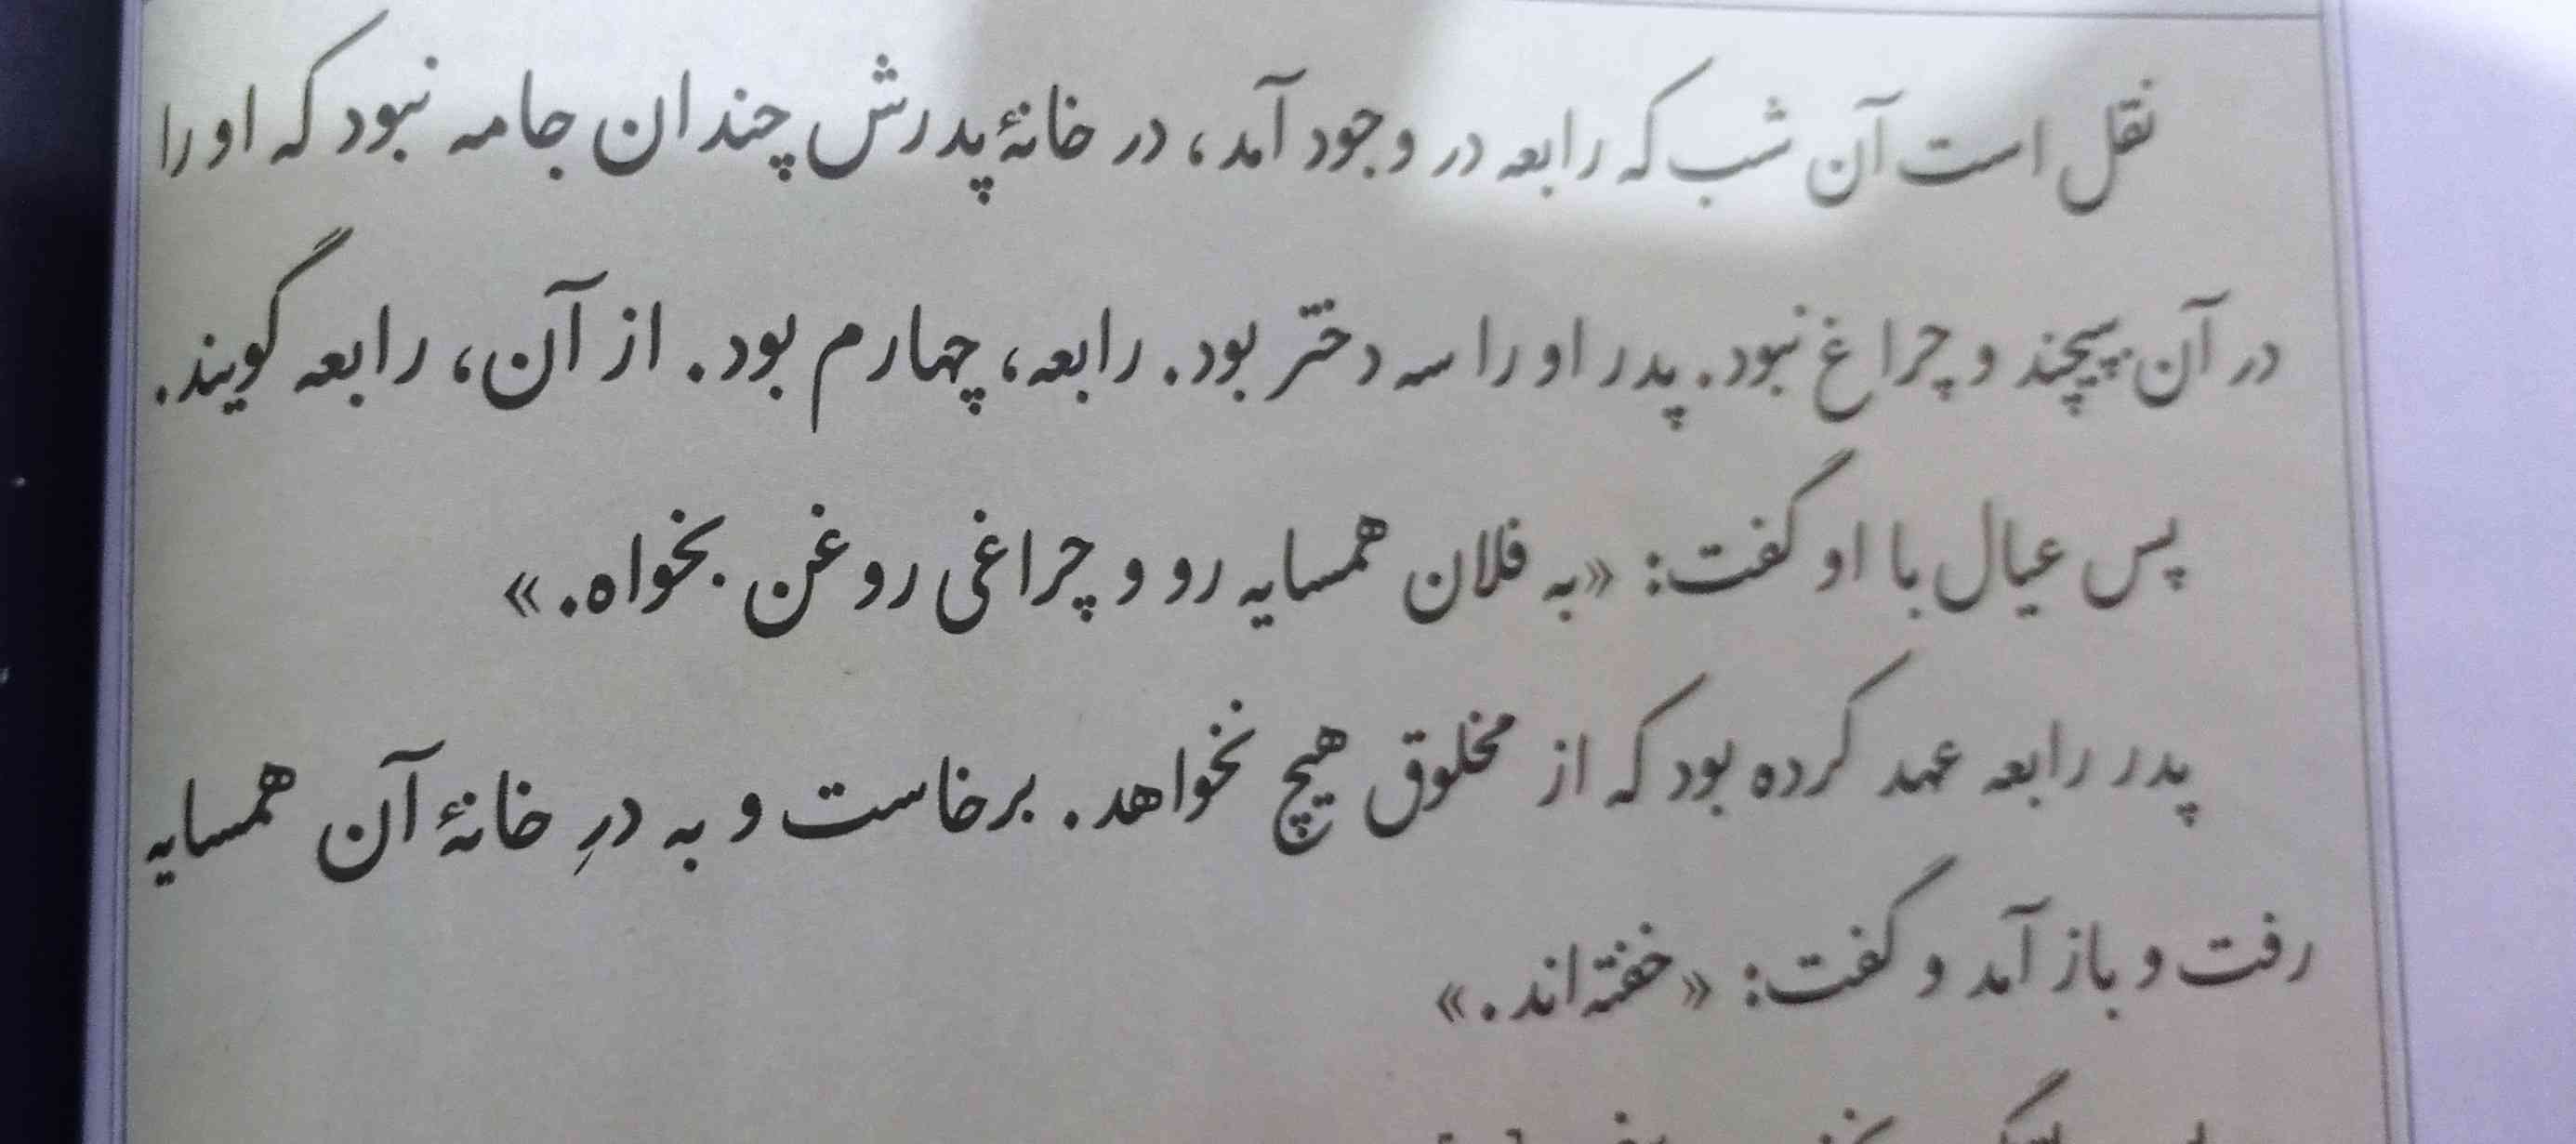 نقل است آن شب که رابعه در وجود آمد، در خانهٔ پدرش چندان جامه نبود که او را
در آن پیچند و چراغ نبود. پدر او را سه دختر بود. رابعه، چهارم بود. از آن، رابعه گویند.
پس عیال با او گفت: «به فلان همسایه رو و چراغی روغن بخواه.»
پدر رابعه عهد کرده بود که از مخلوق هیچ نخواهد. برخاست و به درِ خانهٔ آن همسایه
رفت و باز آمد و گفت: «خفته‌اند.»